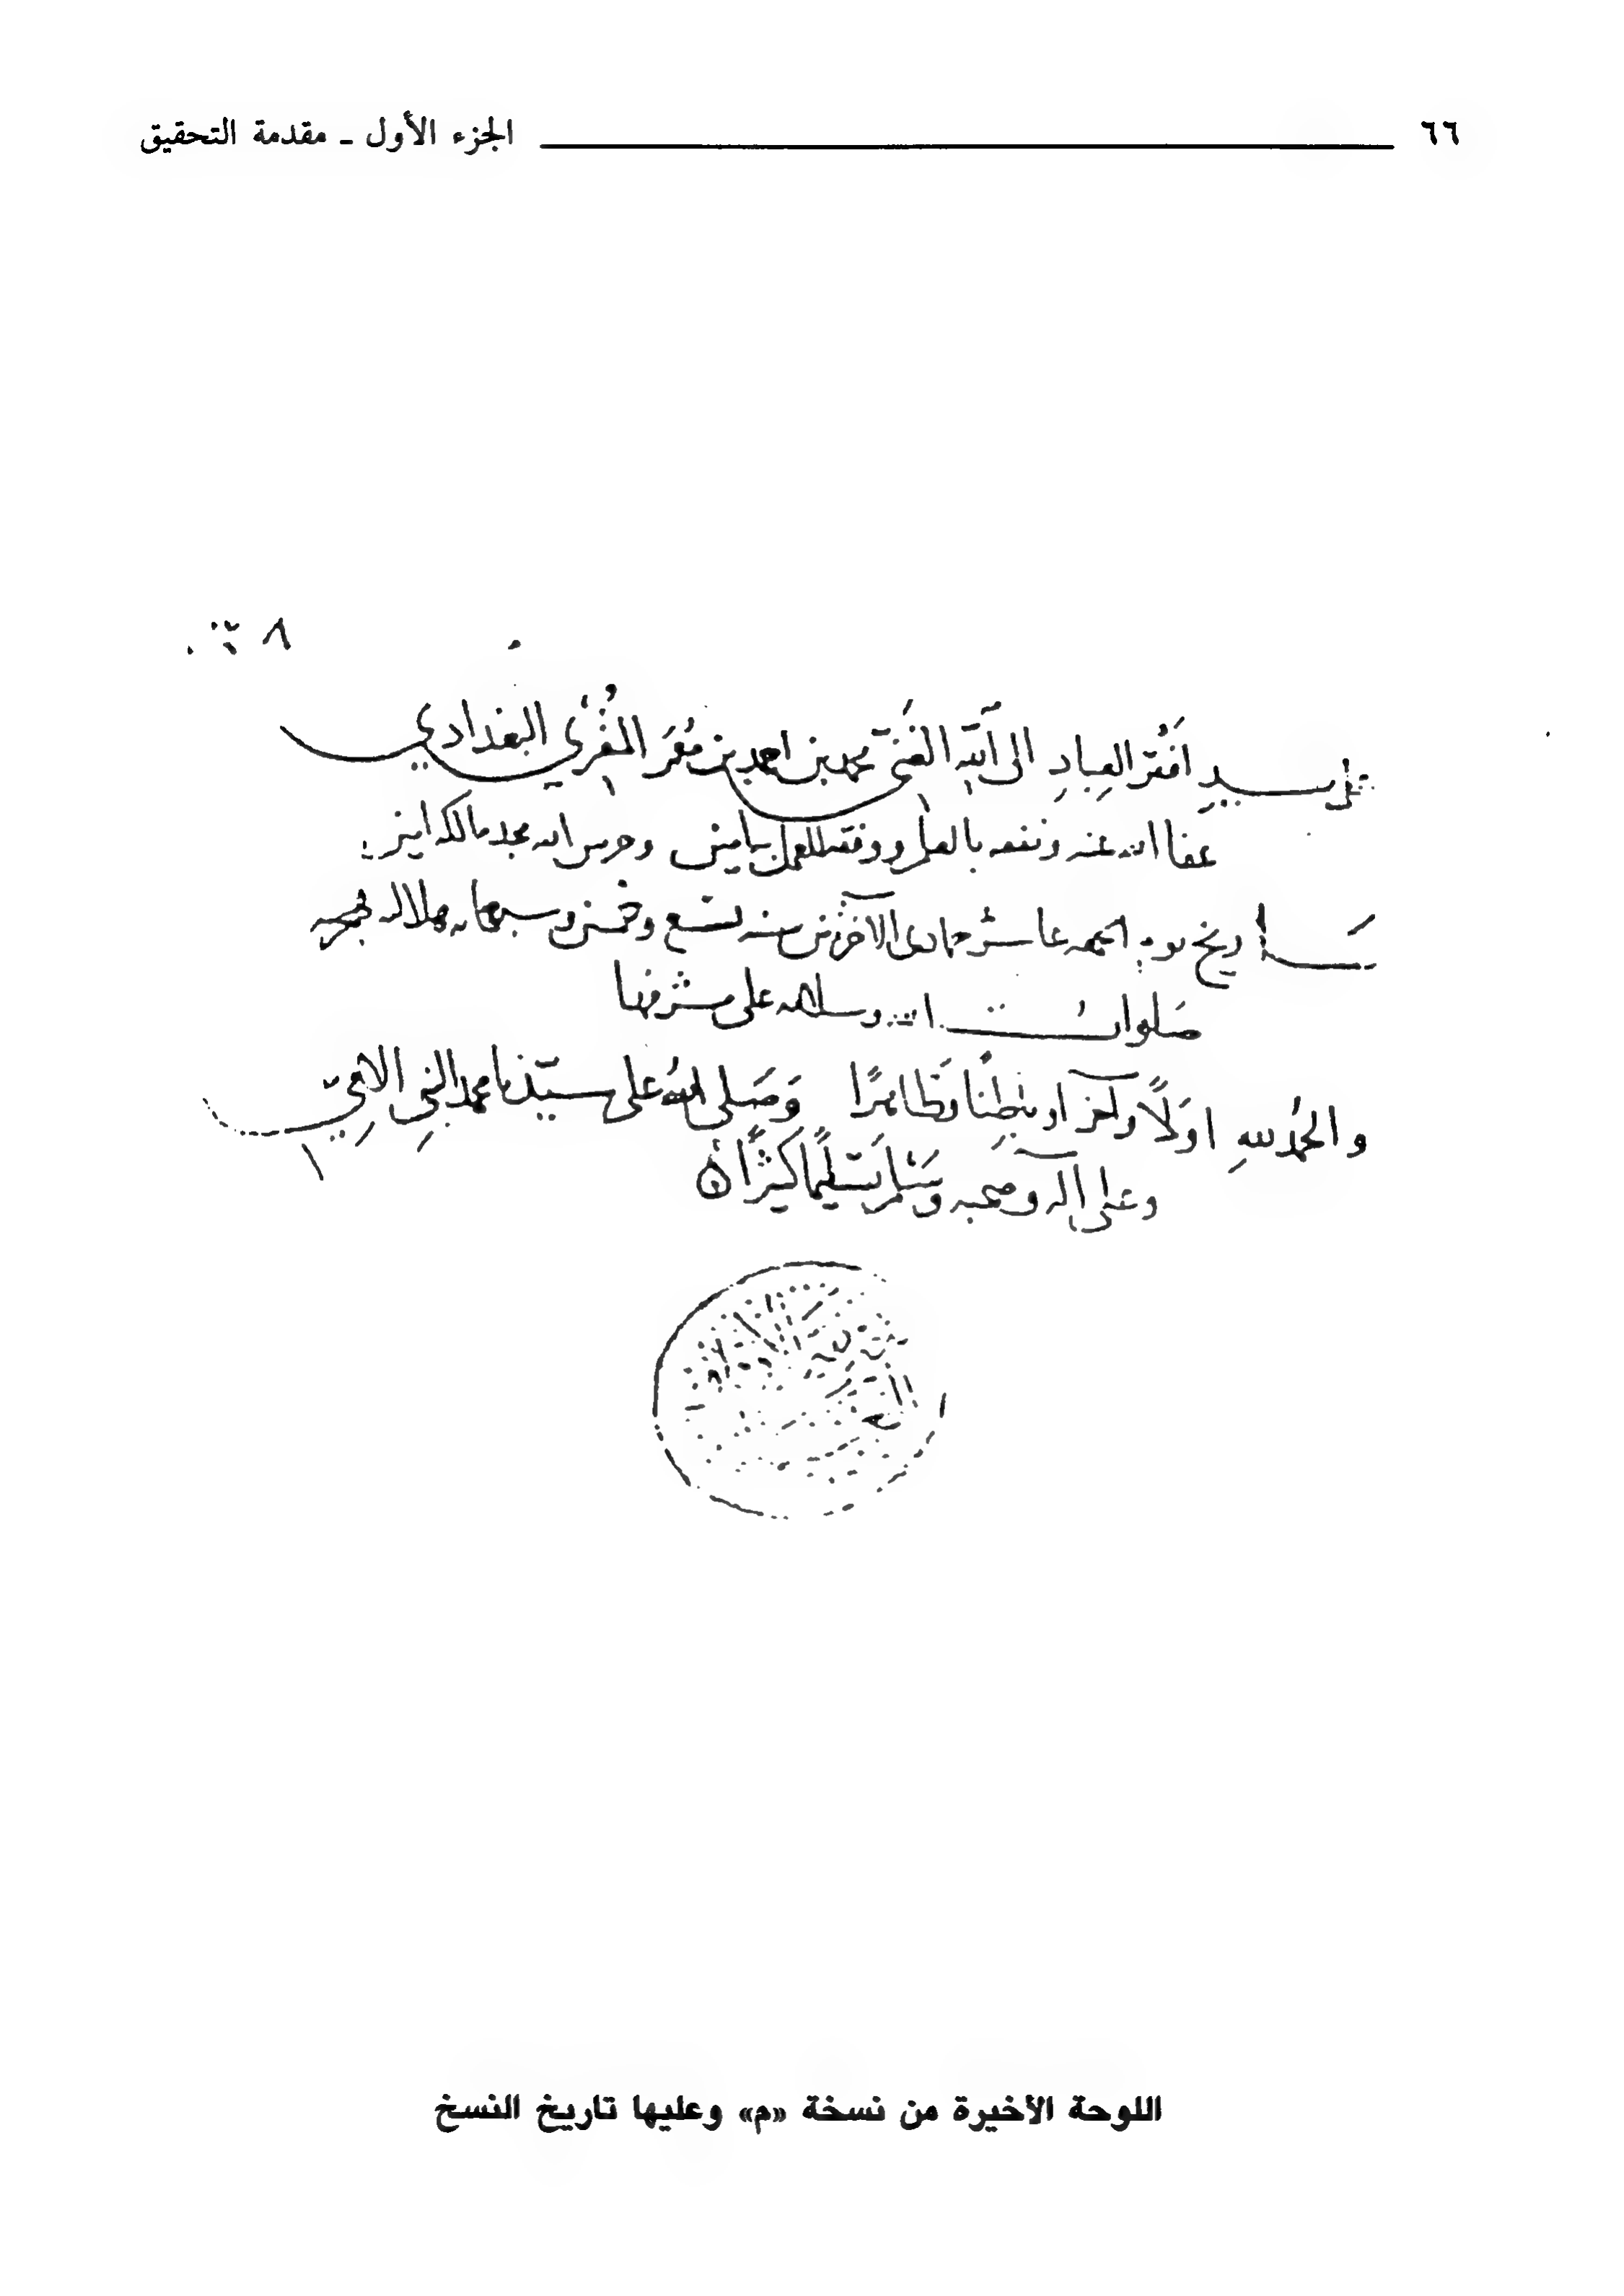 ٦٦ الجزء الأول ـ مقدمة التحقيق
٨
على يد افقر العباد الى الله الغني محمد بن احمد بن معمر المقري البغدادي
عفا الله عنه ونفعه بالعلم ووفقه للعمل بيامين وحرس الله مجد مالكه امين
تاريخ يوم الجمعه عاشر جمادى الآخر من سنه تسع وخمسين وسبعمايه هلاليه هجريه
صلوات الله وسلامه على مشرفها
والحمد لله اولًا وآخرًا وباطنًا وظاهرًا وصلى الله على سيدنا محمد النبي الامي
وعلى آله وصحبه وسلم تسليمًا كثيرًا
اللوحة الأخيرة من نسخة «م» وعليها تاريخ النسخ